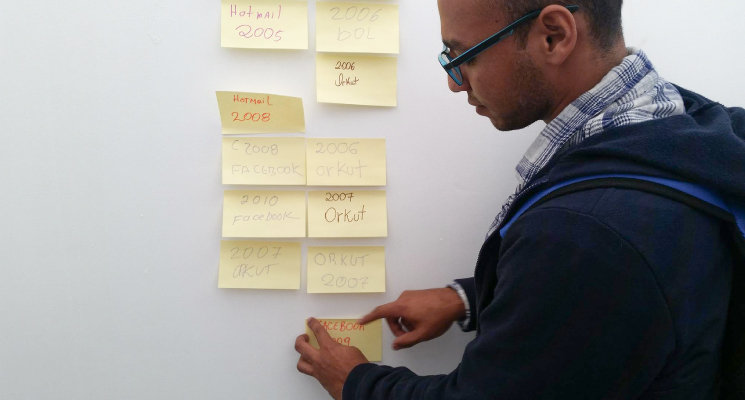 Hotmail
2005
2006
bOL
2006
Orkut
Hotmail
2008
2008
FACEBOOK
2006
orkut
2010
Facebook
2007
Orkut
2007
orkut
ORKUT
2007
FACEBOOK